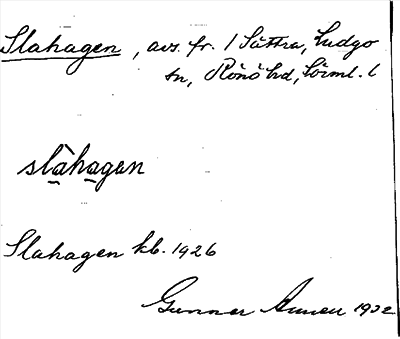 Slahagen, avs. fr. 1 Sättra, Ludgo
sn, Rönö hd, Sörml. l
slàhagen
Slahagen kb. 1926
Gunnar 1932